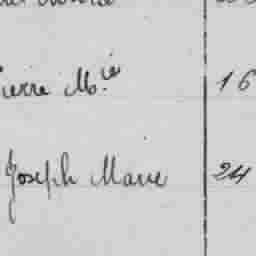 Pierre M.ie 16
Joseph Marie 24